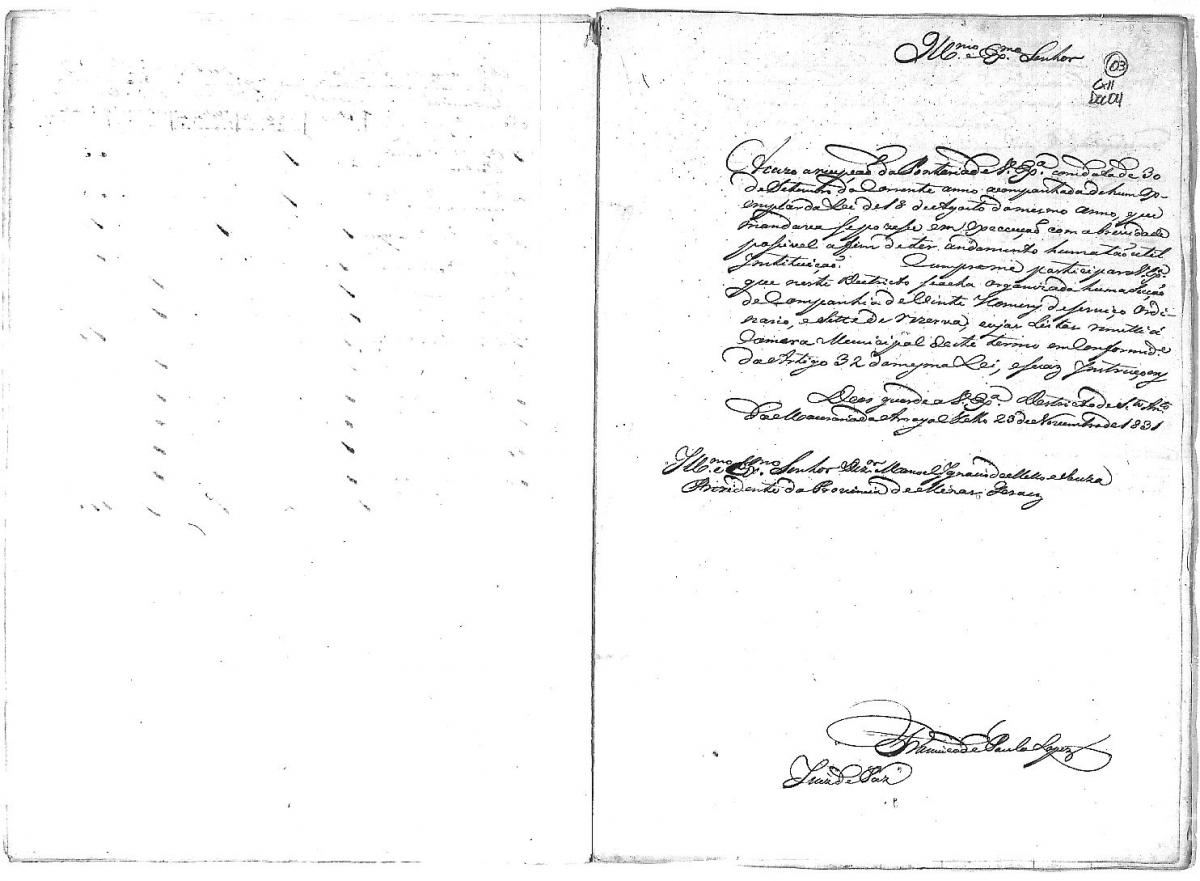 Ill.mo e Ex.mo Senhor
03
Cx11
Doc04
Acuzo a recepção da Portaria de V. Ex.ª com data de 30
de Setembro do Corrente anno acompanhada de hum Ex-
emplar da Lei de 18 de Agosto do mesmo anno, que
mandava se pozese em execução com a brevidade
posivel a fim de ter andamento huma tão util
Instituição. Cumpreme participar a V. Ex.ª
que neste Destricto fica organizada huma Secção
de Companhia de Vinte Homens de serviço Ordi-
nario, e Sette de rezerva, cujas Listas remetti á
Camera Municipal deste termo em Conformid.e
do Artigo 32 da mesma Lei, e suas Instruçoens
Deos guarde a V. Ex.ª Destricto de S.to Ant.o
do Arrayal Velho 23 de Novembro de 1831
Ill.mo e Ex.mo Senhor Dez.or Manoel Ignacio de Mello e Souza
Prezidente da Provincia de Minas Geraes
Francisco de Paula Lopes
Juiz de Paz